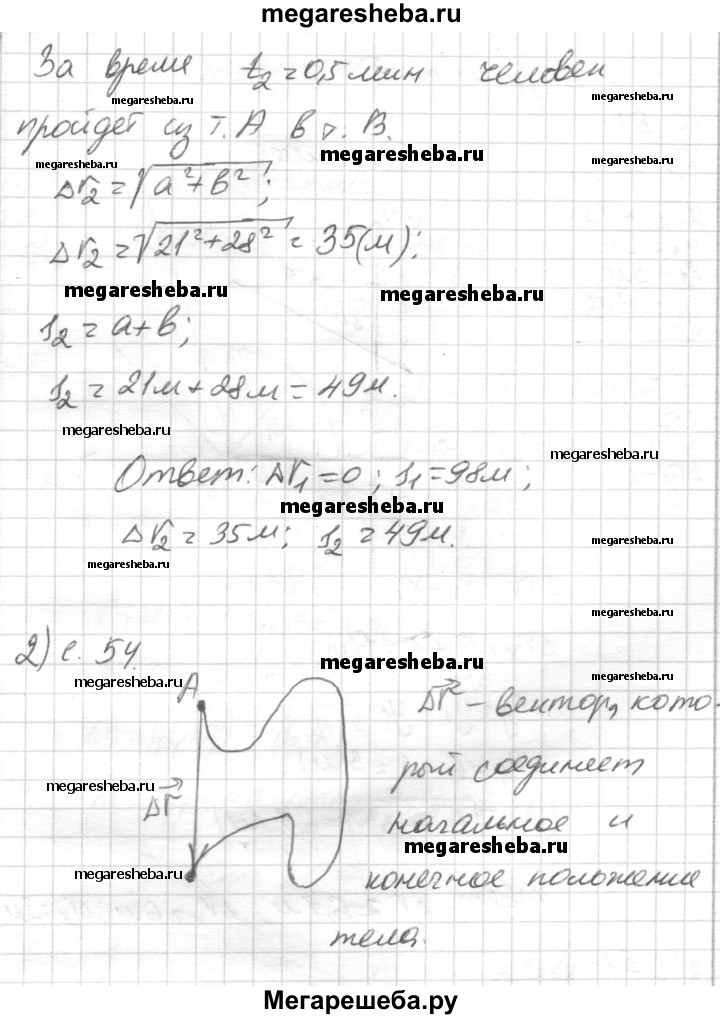 megaresheba.ru
За время t₂=0,5 мин человек
megaresheba.ru megaresheba.ru
пройдет из т. А в т. В.
megaresheba.ru
megaresheba.ru
Δr₂=√a²+b²;
Δr₂=√21²+28² = 35(м);
megaresheba.ru megaresheba.ru
s₂=a+b;
s₂=21м+28м=49м.
megaresheba.ru
megaresheba.ru
Ответ: Δr₁=0; s₁=98м;
megaresheba.ru
Δr₂=35м; s₂=49м.
megaresheba.ru
megaresheba.ru
megaresheba.ru
2) с. 54.
megaresheba.ru
megaresheba.ru
megaresheba.ru
A
Δr⃗ – вектор, кото-
рый соединяет
megaresheba.ru
Δr⃗
начальное и
megaresheba.ru
megaresheba.ru
конечное положение
тела.
Мегарешеба.ру